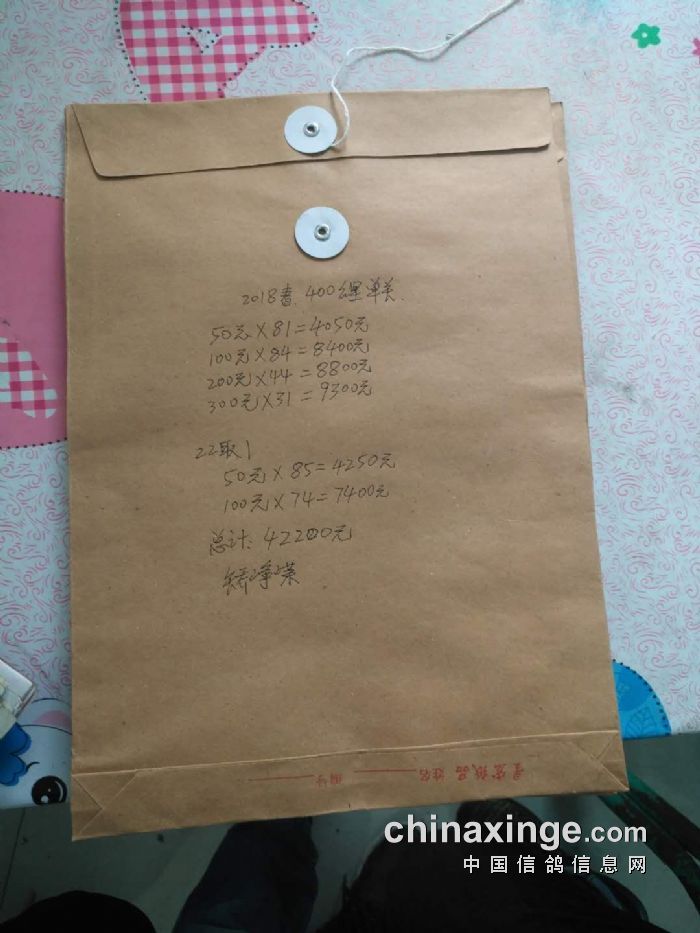 2018春.400继单关.
50元×81=4050元
100元×84=8400元
200元×44=8800元
300元×31=9300元
22取1
50元×85=4250元
100元×74=7400元
总计:42200元
峥荣
星蜜纸品 姓名 编号
chinaxinge.com
中国信鸽信息网